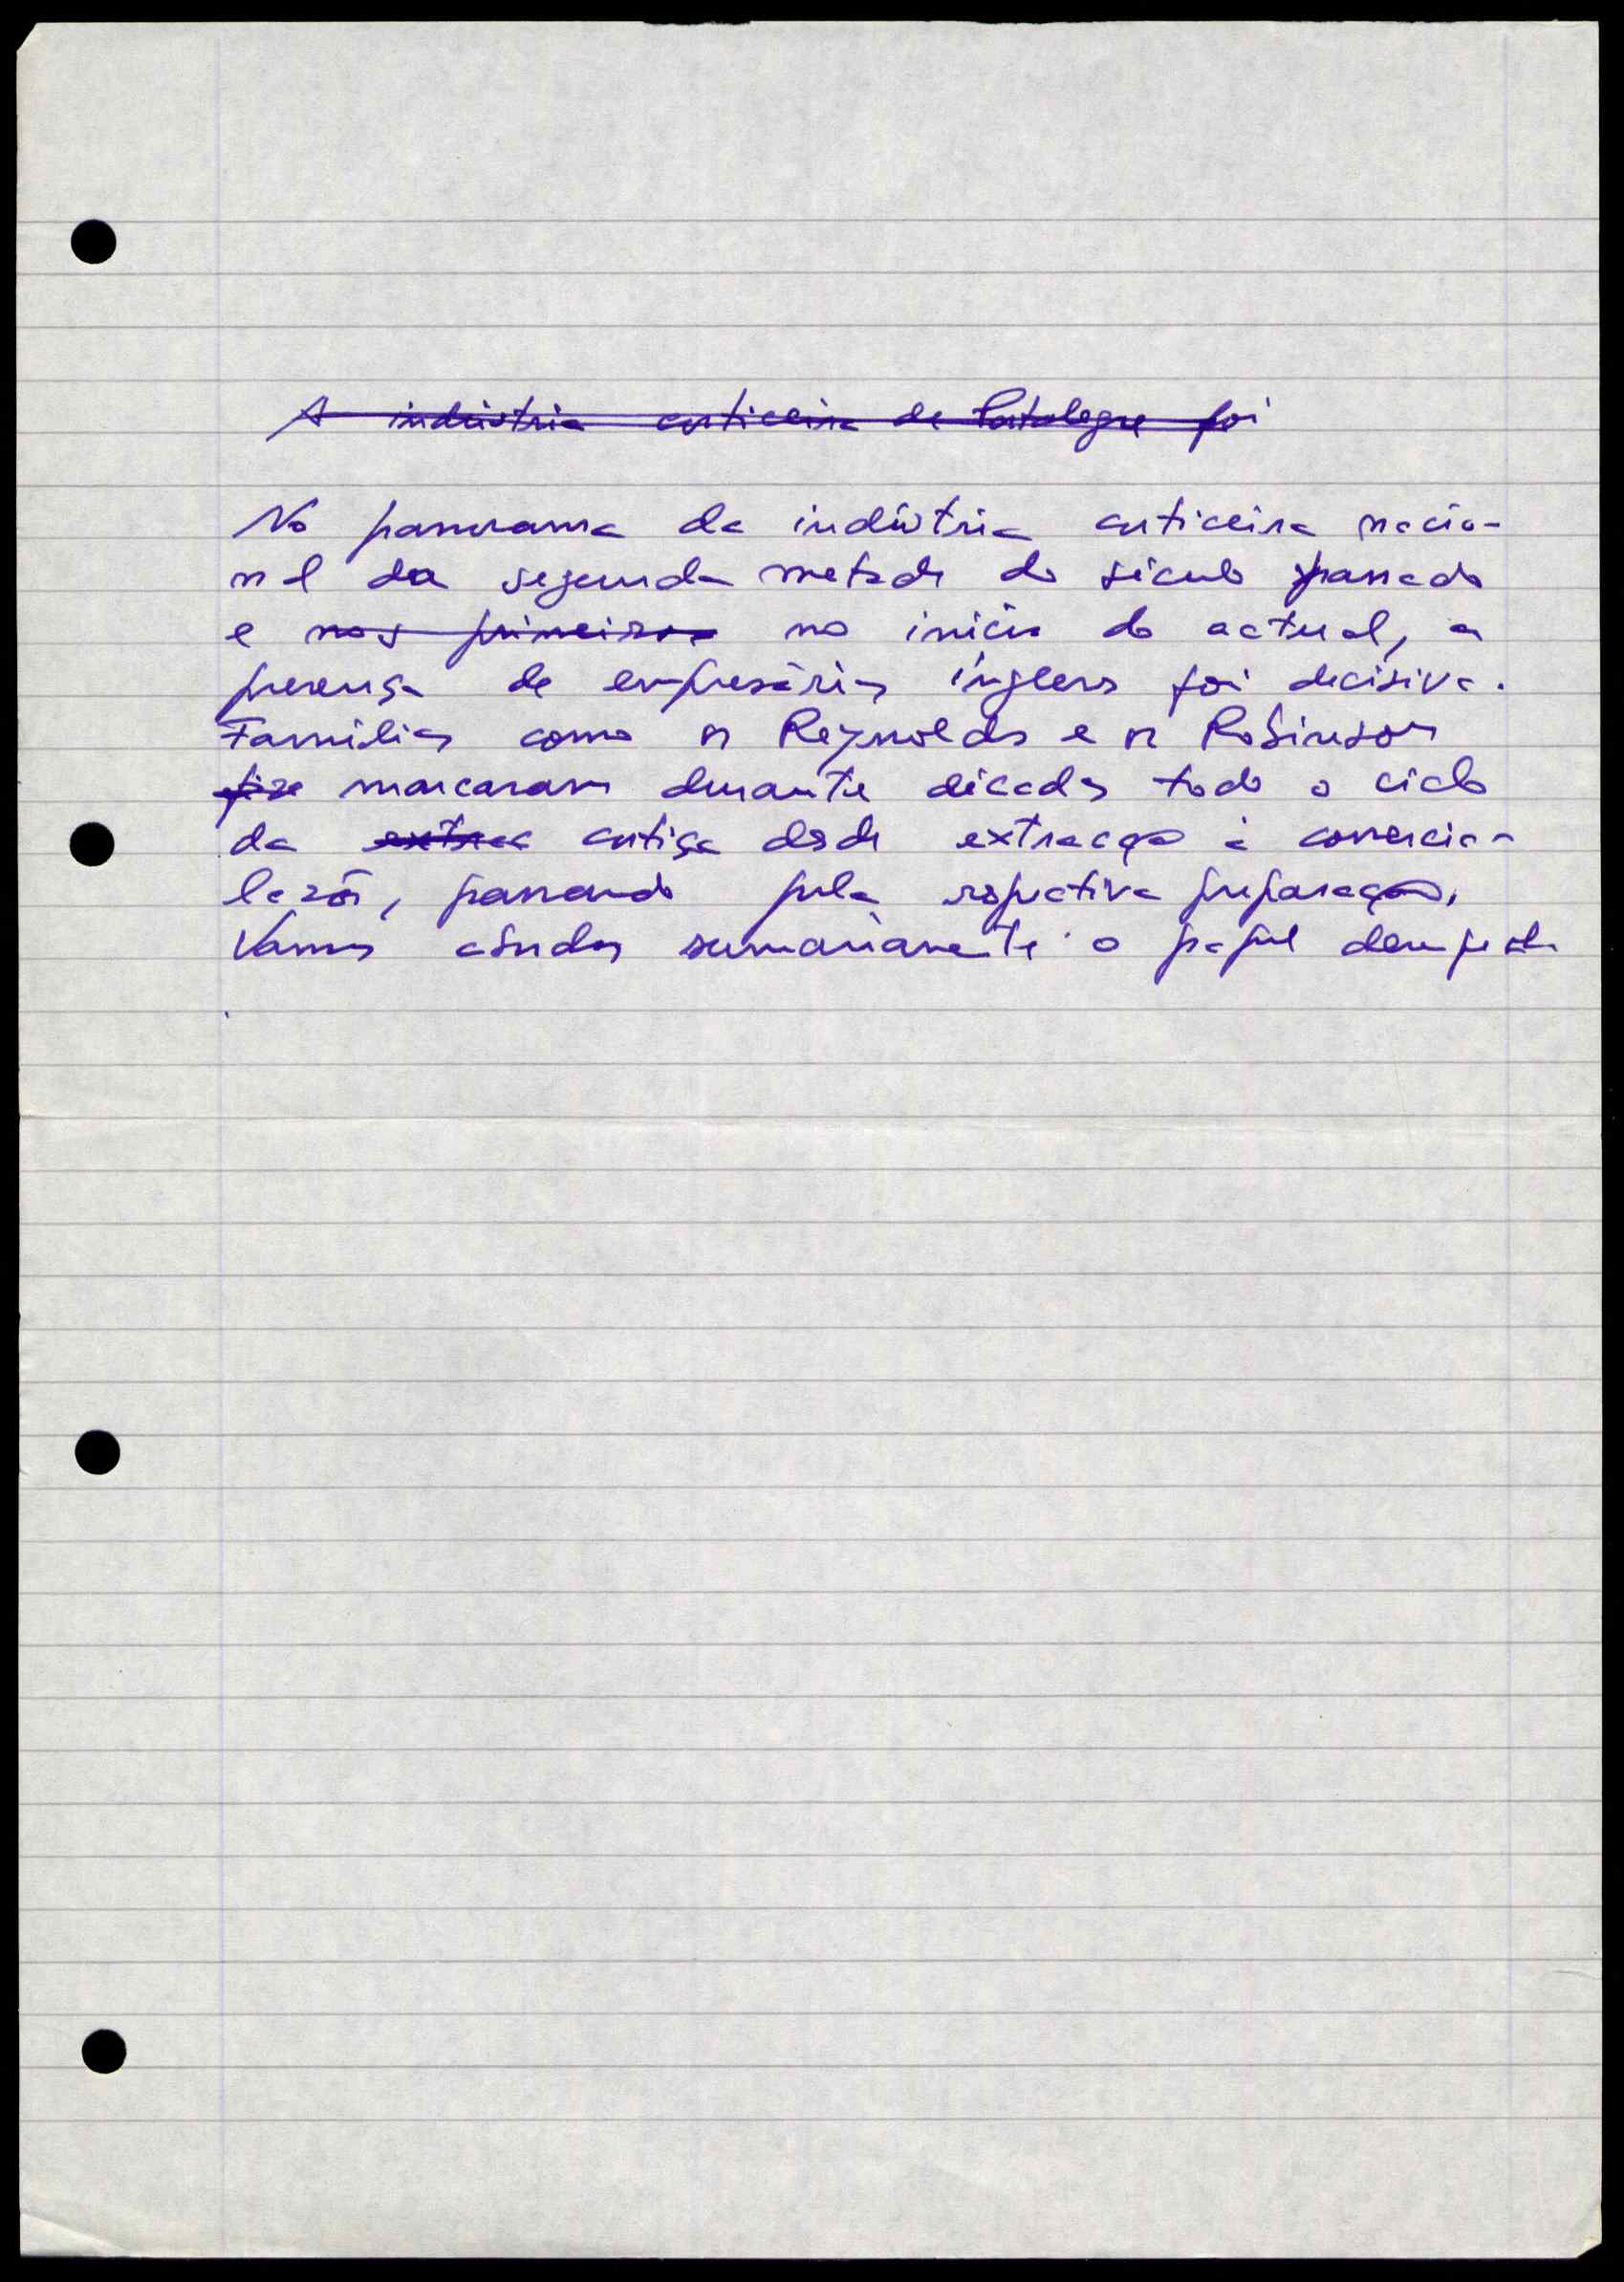 A indústria corticeira de Portalegre foi
No panorama da indústria corticeira nacio-
nal da segunda metade do século passado
e nos primeiros no início do actual, a
presença de empresários ingleses foi decisiva.
Famílias como os Reynolds e os Robinson
marcaram durante décadas todo o ciclo
da extrac cortiça desde extracção à comercia-
lização, passando pela respectiva preparação.
Vamos estudar sumariamente o papel